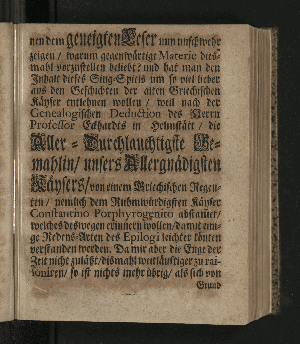 nen dem geneigten Leser nun unschwehr
zeigen / warum gegenwärtige Materie dies-
mahl vorzustellen beliebt? und hat man den
Inhalt dieses Sing-Spiels um so viel lieber
aus den Geschichten der alten Griechischen
Käyser entlehnen wollen / weil nach der
Genealogischen Deduction des Herrn
Professor Eckhardts in Helmstätt / die
Aller-Durchlauchtigste Ge-
mahlin / unsers Allergnädigsten
Käysers / von einem Griechischen Regen-
ten / nemlich dem Ruhmwürdigsten Käyser
Constantino Porphyrogenito abstammet /
welches deswegen erinnern wollen / damit eini-
ge Redens-Arten des Epilogi leichter könten
verstanden werden. Da mir aber die Enge der
Zeit nicht zuläßt / dismahl weitläuftiger zu rai-
soniren / so ist nichts mehr übrig / als sich von
Grund